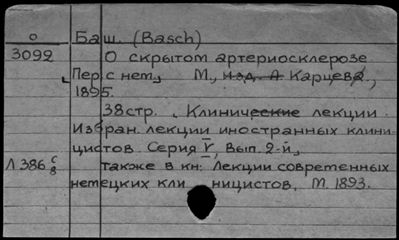 о Баш. (Basch)
3092 О скрытом артериосклерозе
Пер. с нем. М., изд. А. Карцева,
1895.
38 стр. Клинические лекции.
Избран. лекции иностранных клини-
цистов. Серия V, вып. 2-й,
Л 386 с/8 также в кн: Лекции современных
немецких кли ницистов, М. 1893.